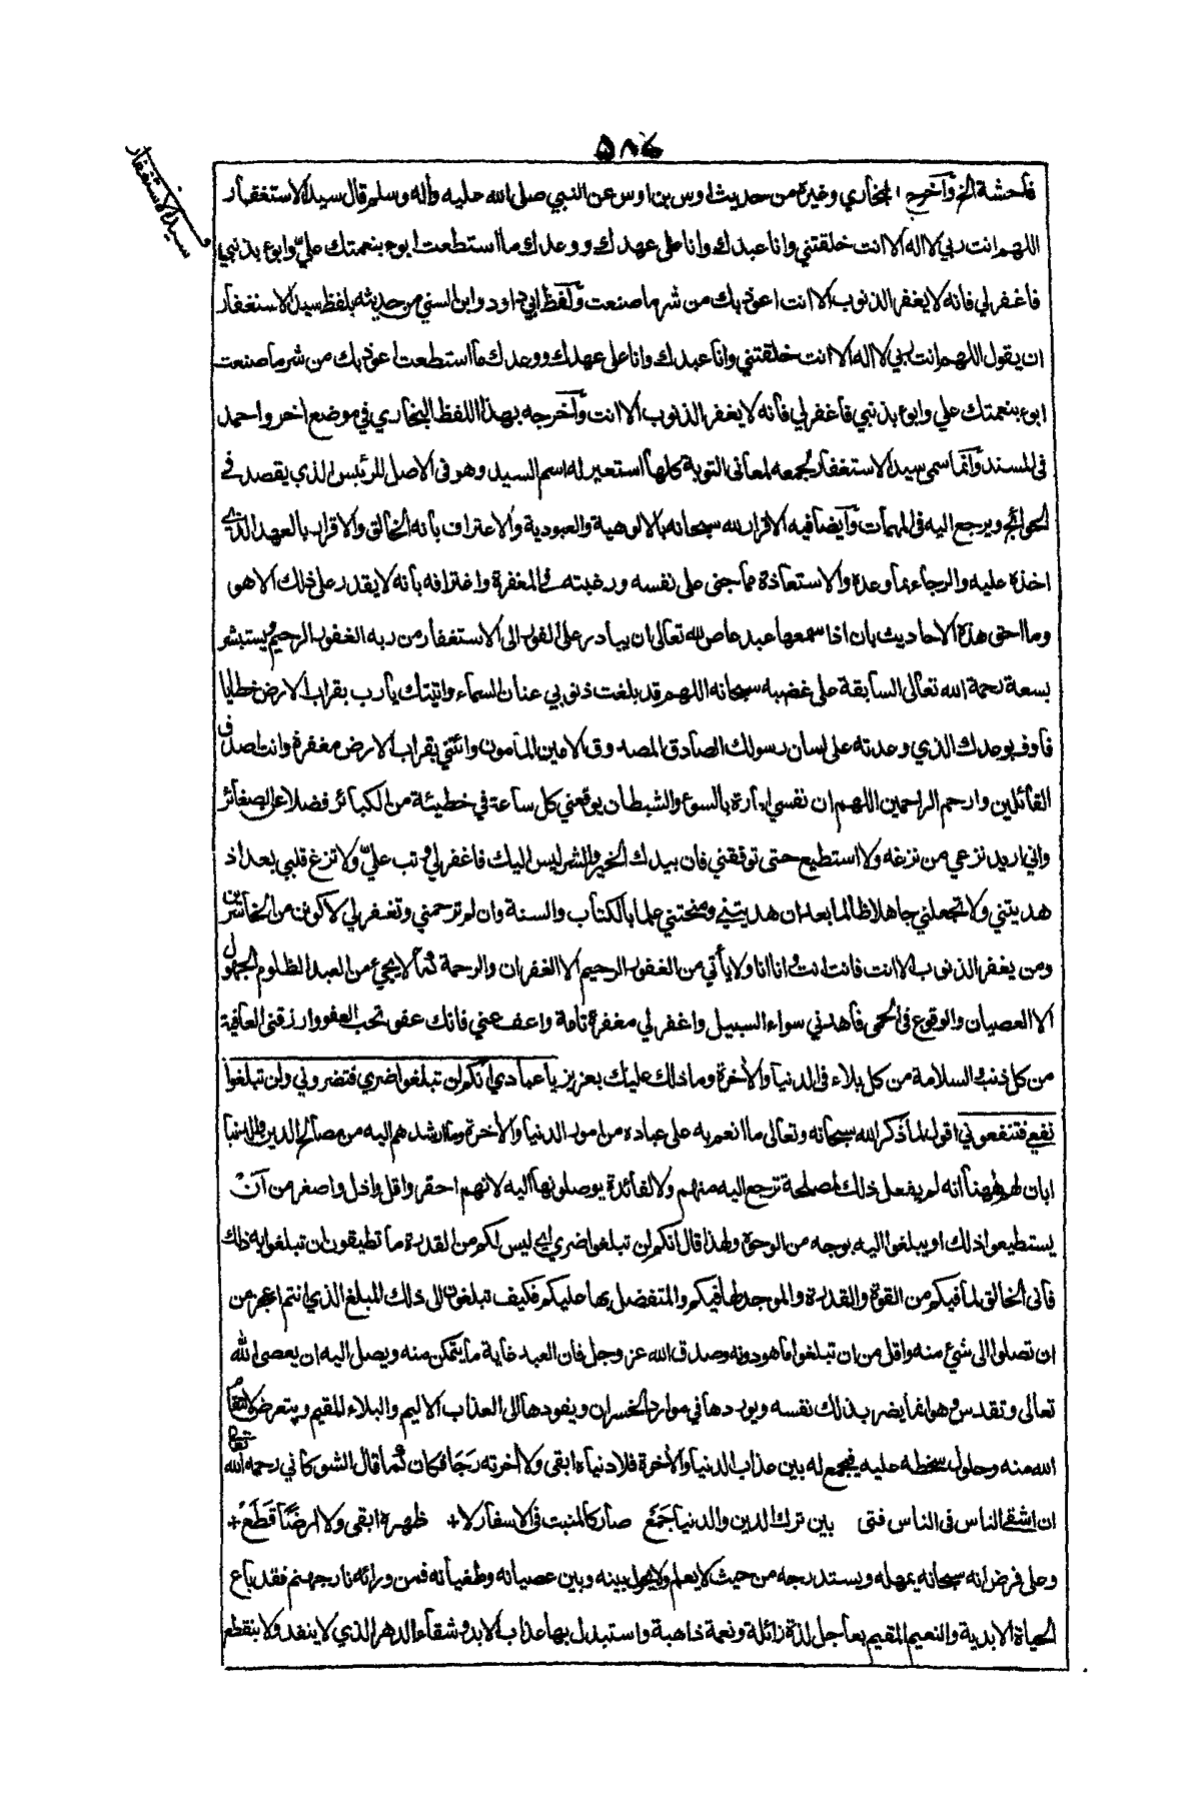 ٥٨٤
سيد الاستغفار
فاحشة الخ وآخرج البخاري وغيره من حديث اوس بن اوس عن النبي صلى الله عليه وآله وسلم قال سيد الاستغفار
اللهم انت ربي لا اله الا انت خلقتني وانا عبدك وانا على عهدك ووعدك ما استطعت ابوء بنعمتك عليّ وابوء بذنبي
فاغفر لي فانه لا يغفر الذنوب الا انت اعوذ بك من شر ما صنعت ولفظ ابي داود وابن السني من حديثه بلفظ سيد الاستغفار
ان يقول اللهم انت ربي لا اله الا انت خلقتني وانا عبدك وانا على عهدك ووعدك ما استطعت اعوذ بك من شر ما صنعت
ابوء بنعمتك علي وابوء بذنبي فاغفر لي فانه لا يغفر الذنوب الا انت وآخرجه بهذا اللفظ البخاري في موضع اخر واحمد
في المسند وآنما سمى سيد الاستغفار لجمعه لمعاني التوبة كلها استعير له اسم السيد وهو في الاصل للرئيس الذي يقصد في
الحوائج ويرجع اليه في المهمات وآيضا فيه الاقرار لله سبحانه بالالوهية والعبودية والاعتراف بانه الخالق والاقرار بالعهد الذي
اخذه عليه والرجاء بما وعده والاستعاذة مما جنى على نفسه ورغبته في المغفرة واعترافه بانه لا يقدر على ذلك الا هو
وما احق هذه الاحاديث بان اذا سمعها عبد عاص لله تعالى ان يبادر على الفور الى الاستغفار من ربه الغفور الرحيم ويستبشر
بسعة رحمة الله تعالى السابقة على غضبه سبحانه اللهم قد بلغت ذنوبي عنان السماء واتيتك يارب بقراب الارض خطايا
فاوف بوعدك الذي وعدته على لسان رسولك الصادق المصدوق الامين المامون وائتني بقراب الارض مغفرة وانت اصدق
القائلين وارحم الراحمين اللهم ان نفسي امارة بالسوء والشيطان يوقعني كل ساعة في خطيئة من الكبائر فضلا عن الصغائر
واني اريد نزعي من نزغه ولا استطيع حتى توفقني فان بيدك الخير والشر ليس اليك فاغفر لي وتب عليّ ولا تزغ قلبي بعد اذ
هديتني ولا تجعلني جاهلا ظالما بعد ان هديتني ومنحتني علما بالكتاب والسنة وان لم ترحمني وتغفر لي لاكونن من الخاسرين
ومن يغفر الذنوب الا انت فانت انت وانا انا ولا يأتي من الغفور الرحيم الا الغفران والرحمة كما لا يجيء من العبد الظلوم الجهول
الا العصيان والوقوع في الحمى فاهدني سواء السبيل واغفر لي مغفرة تامة واعف عني فانك عفو تحب العفو وارزقني العافية
من كل ذنب والسلامة من كل بلاء في الدنيا والآخرة وما ذلك عليك بعزيز يا عبادي انكم لن تبلغوا ضري فتضروني ولن تبلغوا
نفعي فتنفعوني اقول لما ذكر الله سبحانه وتعالى ما انعم به على عباده من امور الدنيا والآخرة وما ارشدهم اليه من مصالح الدين والدنيا
ابان لهم ههنا انه لم يفعل ذلك لمصلحة ترجع اليه منهم ولا لفائدة يوصلونها اليه لانهم احقر واقل واذل واصغر من ان
يستطيعوا ذلك او يبلغوا اليه بوجه من الوجوه ولهذا قال انكم لن تبلغوا ضري اي ليس لكم من القدرة ما تطيقون ان تبلغوا به ذلك
فاني الخالق لما فيكم من القوة والقدرة والموجد لها فيكم والمتفضل بها عليكم فكيف تبلغون الى ذلك المبلغ الذي انتم اعجز من
ان تصلوا الى شيء منه واقل من ان تبلغوا ما هو دونه وصدق الله عز وجل فان العبد غاية ما يتمكن منه ويصل اليه ان يعصى الله
تعالى وتقدس وهو انما يضر بذلك نفسه ويوردها في موارد الخسران ويقودها الى العذاب الاليم والبلاء المقيم ويتعرض لانتقام
الله منه وحلول سخطه عليه فيجمع له بين عذاب الدنيا والآخرة فلا دنياه ابقى ولا آخرته رَجَا فكان كما قال الشوكاني رحمه الله تعالى
ان اشقى الناس في الناس فتى بين ترك الدين والدنيا جَمَعْ صار كالمنبت في الاسفار لا + ظهره ابقى ولا ارضًا قَطَعْ +
وعلى فرض انه سبحانه يمهله ويستدرجه من حيث لا يعلم ولا يحول بينه وبين عصيانه وطغيانه فمن ورائه نار جهنم فقد باع
الحياة الابدية والنعيم المقيم بعاجل لذة زائلة ونعمة ذاهبة واستبدل بها عذاب الابد وشقاء الدهر الذي لا ينفد ولا ينقطع